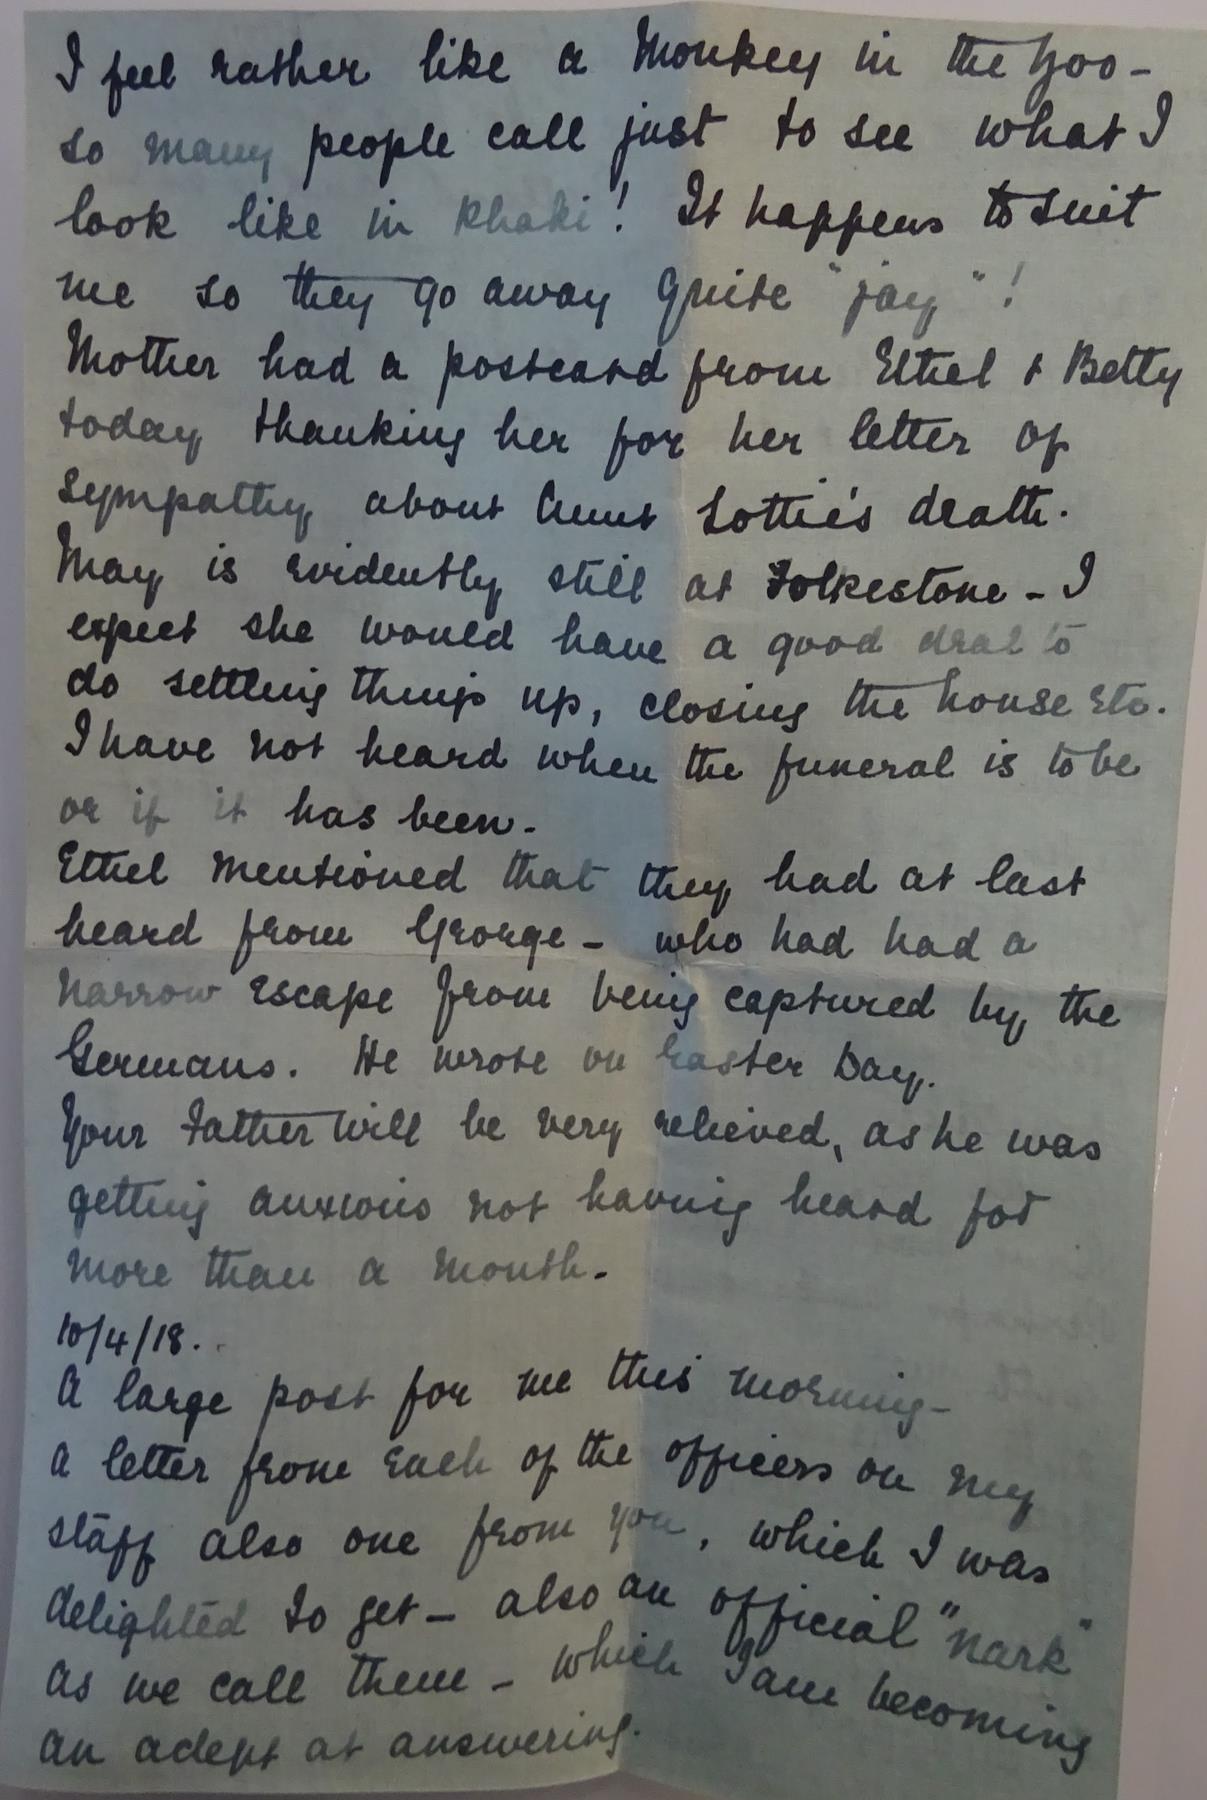 I feel rather like a Monkey in the Zoo -
so many people call just to see what I
look like in Khaki! It happens to suit
me so they go away quite "jay"!
Mother had a postcard from Ethel & Betty
today thanking her for her letter of
sympathy about Aunt Lottie's death.
May is evidently still at Folkestone - I
expect she would have a good deal to
do settling things up, closing the house etc.
I have not heard when the funeral is to be
or if it has been.
Ethel mentioned that they had at last
heard from George - who had had a
narrow escape from being captured by the
Germans. He wrote on Easter Day.
Your Father will be very relieved, as he was
getting anxious not having heard for
more than a month.
10/4/18.
A large post for me this morning -
a letter from each of the officers on my
staff also one from you, which I was
delighted to get - also an official "nark"
as we call them - which I am becoming
an adept at answering.